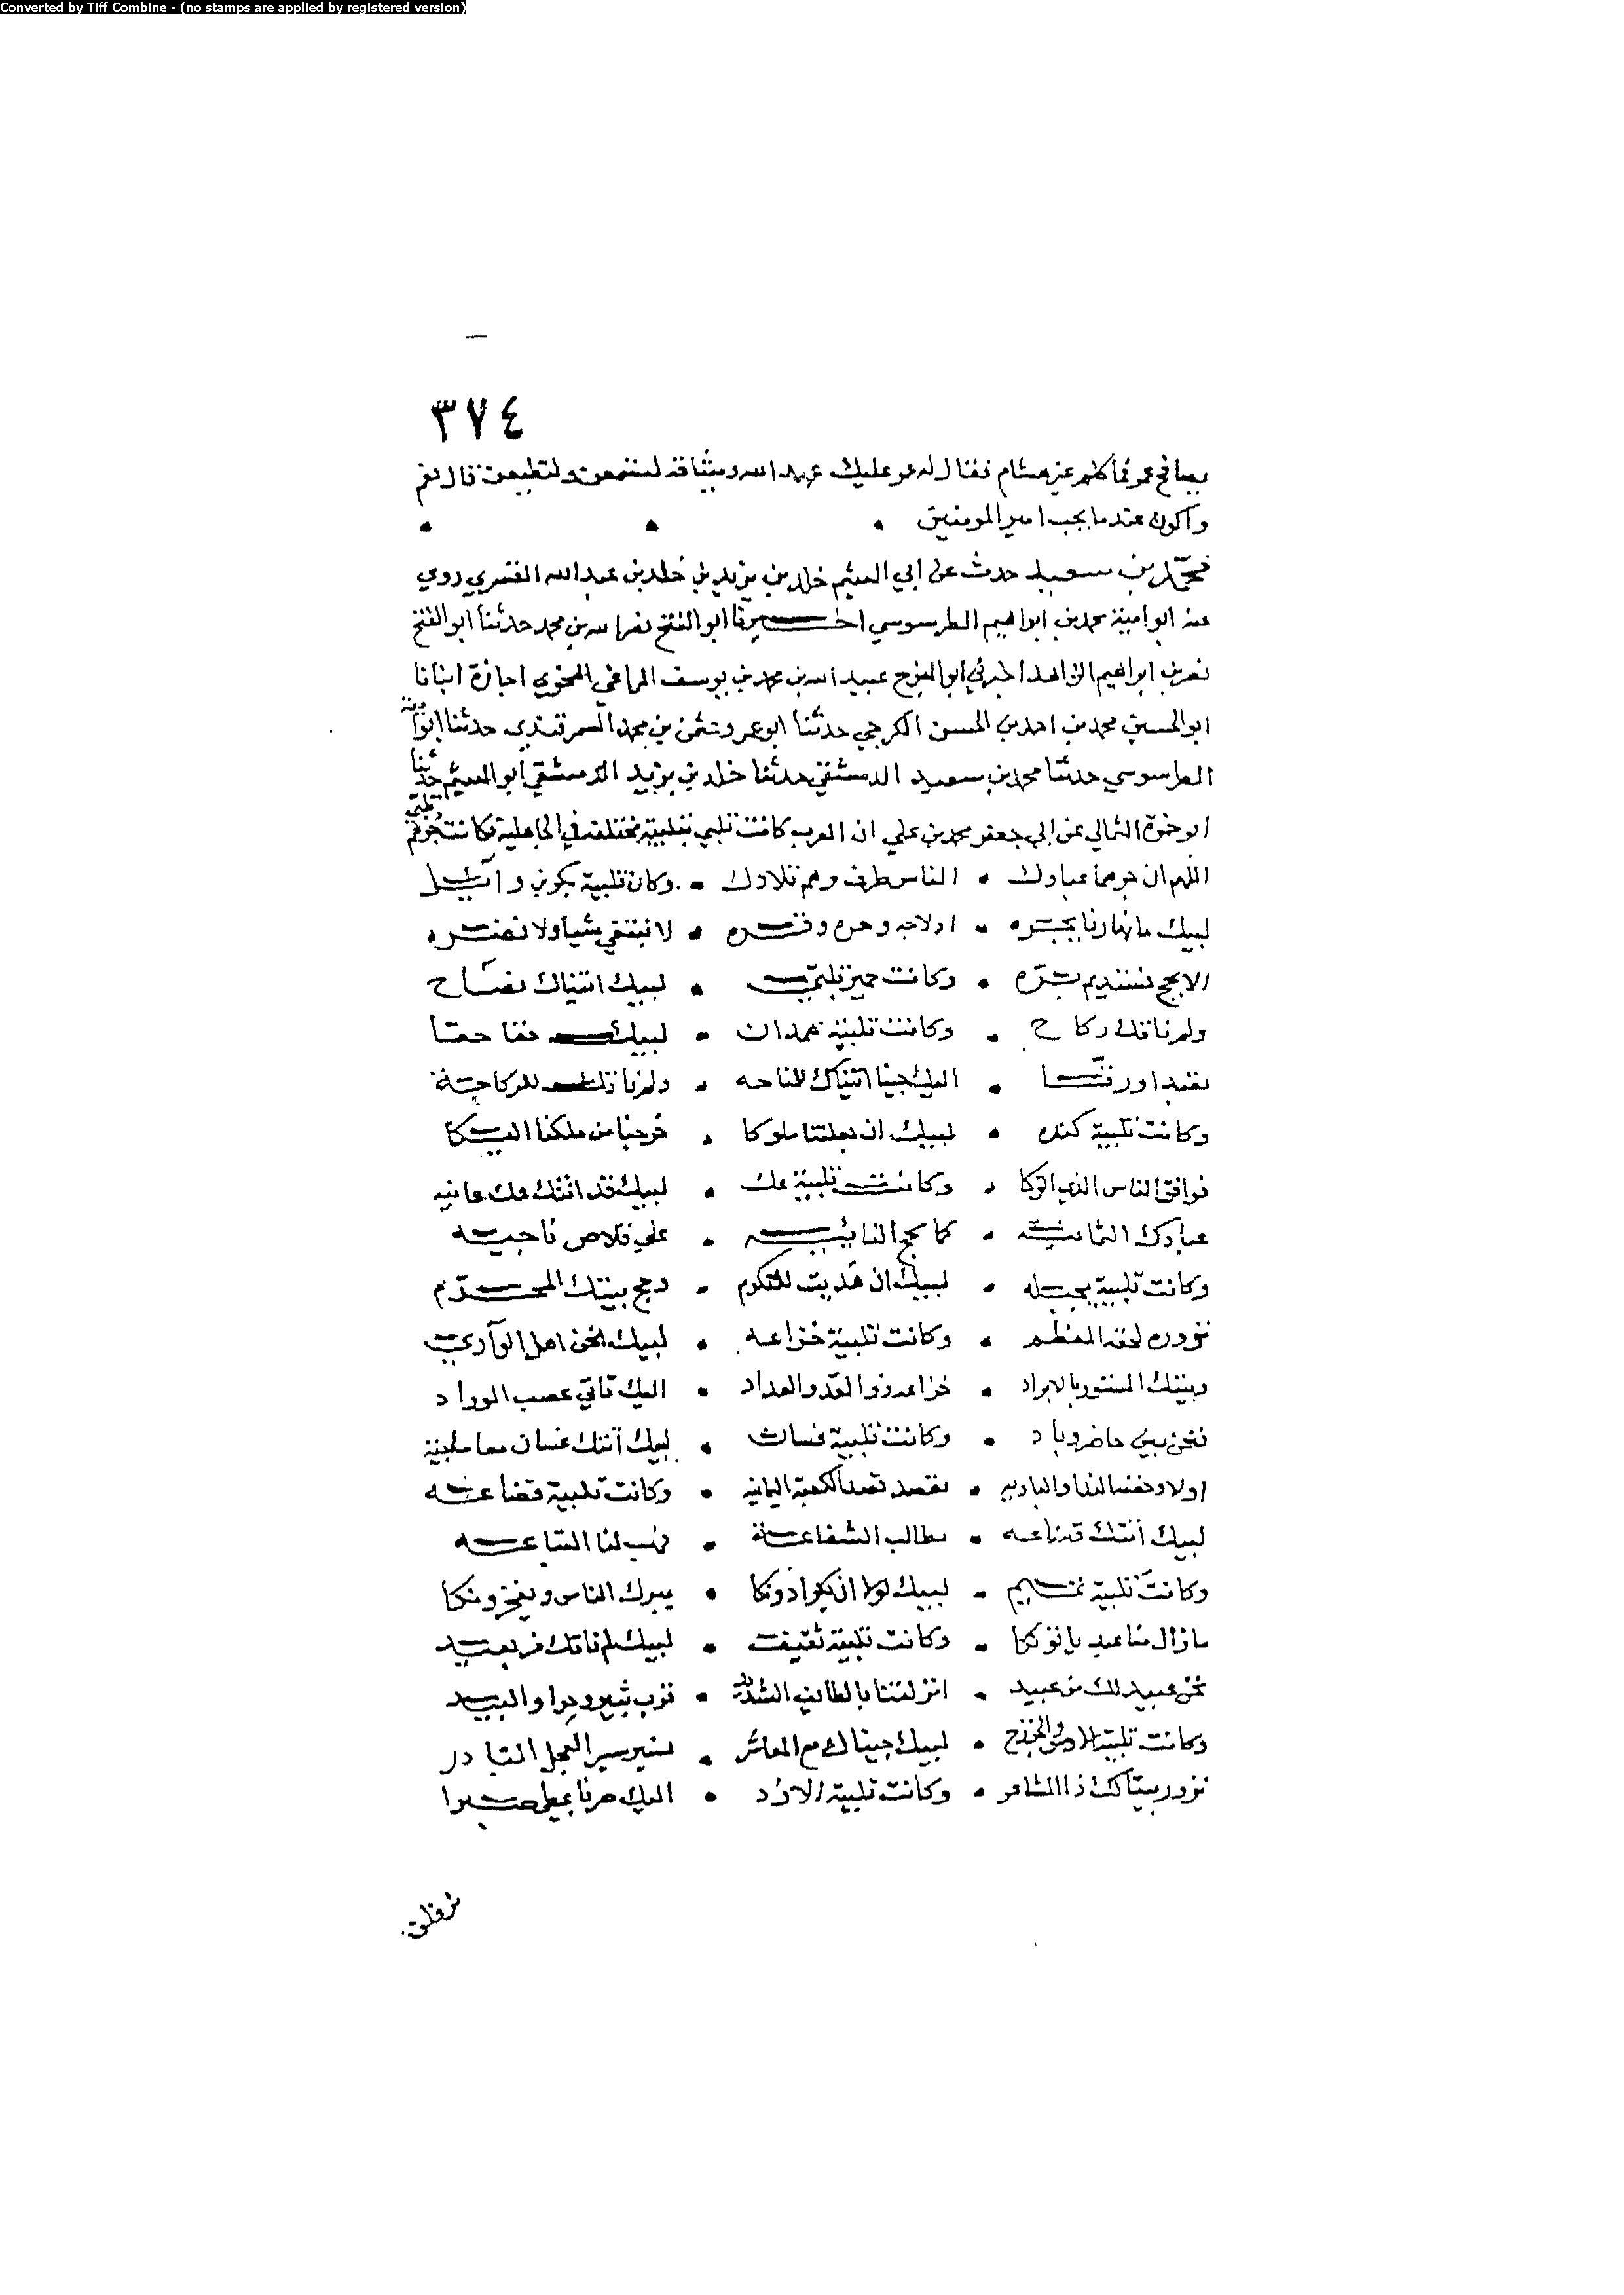 Converted by Tiff Combine - (no stamps are applied by registered version)
٣٧٤
عمر عن هشام فقال له عمر عليك عهد الله وميثاقه لتسمعن ولتطيعن قال نعم
واكون عند ما يجب امير المومنين
محمد بن سعيد حدث عن ابي الهيثم خلد بن يزيد بن خلد بن عبد الله القسري روي
عنه ابو امية محمد بن ابراهيم الطرسوسي اخبرنا ابو الفتح نصر الله بن محمد حدثنا ابو الفتح
نصر بن ابراهيم الزاهد اخبرني ابو الفرج عبيد الله بن محمد بن يوسف المراغي النحوي اجازة انبانا
ابو الحسين محمد بن احمد بن الحسن الكرجي حدثنا ابو عمر وعثمن بن محمد السمرقندي حدثنا ابو امية
الطرسوسي حدثنا محمد بن سعيد الدمشقي حدثنا خلد بن يزيد الدمشقي ابو الهيثم حدثنا
ابو حمزة الثمالي عن ابي جعفر محمد بن علي ان العرب كانت تلبي بتلبية مختلفة في الجاهلية فكانت جرهم تلبي
اللهم ان جرهما عبادك • الناس طرف وهم تلادك • وكان تلبية بكر بن وائل
لبيك ما نهارنا بجره • ادلاجه وحره وقره • لا نتقي شيا ولا نضره
الا بحج مستديم بره • وكانت حمير تلبي • لبيك اتيناك نصاح
ولم ناتك ركاح • وكانت تلبية همدان • لبيك حقا حقا
تعبدا ورقا • اليك جينا اتيناك للناحه • ولم ناتك للركاحة
وكانت تلبية كنده • لبيك ان جعلتنا ملوكا • خرجنا من ملكنا اليكا
نوافق الناس الذي • وكانت تلبية عك • لبيك قد اتتك عك عانيه
عبادك اليمانيه • كما نحج الثانيه • علي قلاص ناجيه
وكانت تلبية بجيله • لبيك ان هديت للتكرم • وحج بيتك المحرم
نزوره لحقه المعظم • وكانت تلبية خزاعه • لبيك نحن اهل الوادي
وبيتك المستور بالابراد • خزاعه ذو العد والعداد • اليك تاتي عصب الوراد
نحن بين حاضر وباد • وكانت تلبية غسان • لبيك اتتك غسان معا ملبية
اولاد جفنة الندا والباديه • نقصد قصد الكعبة اليمانيه • وكانت تلبية قضاعه
لبيك اتتك قضاعه • بطالب الشفاعة • فهب لنا الشاعه
وكانت تلبية تميم • لبيك لولا ان بكرا دونكا • يبرك الناس ويفجرونكا
ما زال منا عجيج ياتونكا • وكانت تلبية ثقيف • لبيك لم ناتك من بعيد
نحن عبيد لك من عبيد • انزلتنا بالطائف الشديد • قرب ثبير وحرا والبيد
وكانت تلبية الاوس والخزرج • لبيك جيناك مع المعاشر • لسير سير العجل المبادر
نزور بيتا لك ذا المشاعر • وكانت تلبية الازد • اليك سرنا